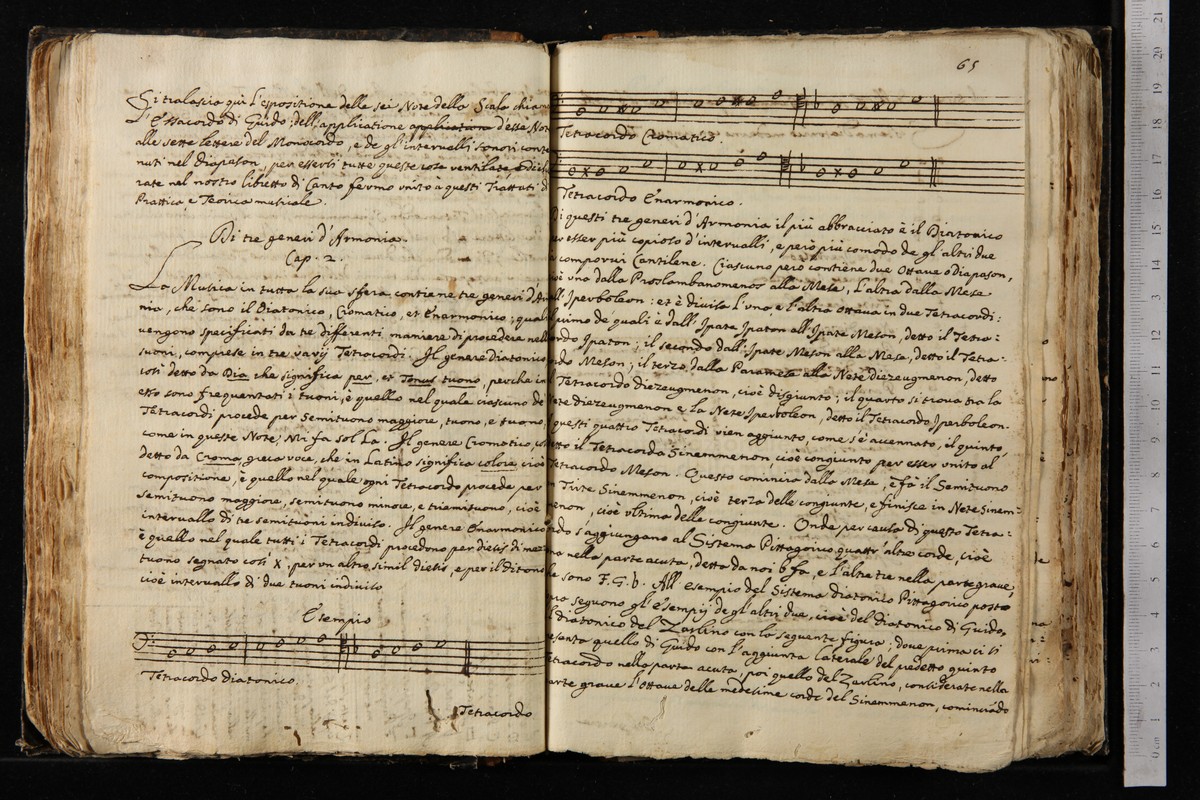 Si tralascia qui l'espositione delle sei Note della Scala chiam
l'Essacordo di Guido; dell'applicatione applicatione d'esse Not
alle sette lettere del Monocordo, e de gl'intervalli sonori conte
nuti nel diapason, per essersi tutte queste cose ventilate, e dichi
rate nel nostro libretto di Canto fermo unito a questi Trattati di
Prattica, e Teorica musicale.
Di tre generi d'Armonia.
Cap. 2.
La Musica in tutta la sua sfera contiene tre generi d'Ar
nia, che sono il Diatonico, Cromatico, et Enarmonico; quali
vengono specificati da tre differenti maniere di procedere nelli
suoni, comprese in tre varij Tetracordi. Il genere Diatonico
così detto da Dia che significa per, et Tonus tuono, perche in
esso sono frequentati i tuoni, e quello nel quale ciascuno de
Tetracordi procede per Semituono maggiore, tuono, e tuono,
come in queste Note, Mi fa sol La. Il genere Cromatico, co
detto da Croma, greca voce, che in Latino significa colore, cioè
compositione, è quello nel quale ogni Tetracordo procede per
semituono maggiore, semituono minore, e triemituono, cioè
intervallo di tre semituoni indiviso. Il genere Enarmonico
è quello nel quale tutti i Tetracordi procedono per diesis di mez
tuono segnato così X, per un altro simil diesis, e per il ditono
cioè intervallo di due tuoni indiviso
Esempio
Tetracordo diatonico.
Tetracordo
65
Tetracordo Cromatico.
Tetracordo Enarmonico.
Di questi tre generi d'Armonia il più abbracciato è il Diatonico
esser più copioso d'intervalli, e però più comodo de gl'altri due
comporvi Cantilene. Ciascuno però contiene due Ottave ò Diapason,
cioè una dalla Proslambanomenos alla Mese, l'altra dalla Mese
all'Iperboleon: et è divisa l'una e l'altra ottava in due Tetracordi:
primo de quali è dall'Ipate Ipaton all'Ipate Meson, detto il Tetra:
cordo Ipaton; il secondo dall'Ipate Meson alla Mese, detto il Tetra:
cordo Meson; il terzo dalla Paramese alla Nete diezeugmenon, detto
Tetracordo diezeugmenon, cioè disgiunto; il quarto si trova tra la
Nete diezeugmenon e la Nete Iperboleon, detto il Tetracordo Iperboleon.
questi quattro Tetracordi vien aggiunto, come s'è accennato, il quinto,
detto il Tetracordo Sinemmenon, cioè congiunto per esser unito al
Tetracordo Meson. Questo comincia dalla Mese, e fà il Semituono
Trite Sinemmenon, cioè terza delle congiunte, e finisce in Nete Sinem:
menon, cioè ultima delle congiunte. Onde per causa di questo Tetra:
cordo s'aggiungano al Sistema Pittagorico quattr'altre corde, cioè
una nella parte acuta, detta da noi b fa, e l'altre tre nella parte grave,
che sono F. G. b. All'esempio del Sistema diatonico Pittagorico posto
seguono gl'esempij de gl'altri due, cioè del diatonico di Guido,
diatonico del Zarlino con la seguente figura; dove prima ci si
quello di Guido con l'aggiunta laterale del predetto quinto
tetracordo nella parte acuta, poi quello del Zarlino, considerate nella
parte grave l'ottave delle medesime corde del Sinemmenon, cominciãdo